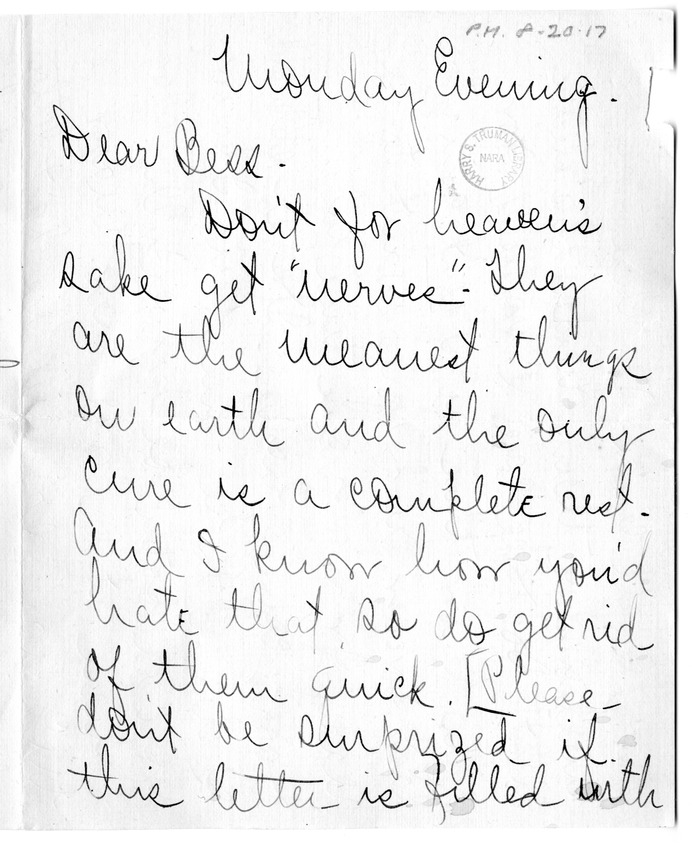 P.M. 8-20-17
Monday Evening.
Dear Bess.
HARRY S. TRUMAN LIBRARY
NARA
Don't for heaven's
sake get "nerves". They
are the meanest things
on earth and the only
cure is a complete rest.
And I know how you'd
hate that so do get rid
of them quick. [Please
don't be surprized if
this letter is filled with